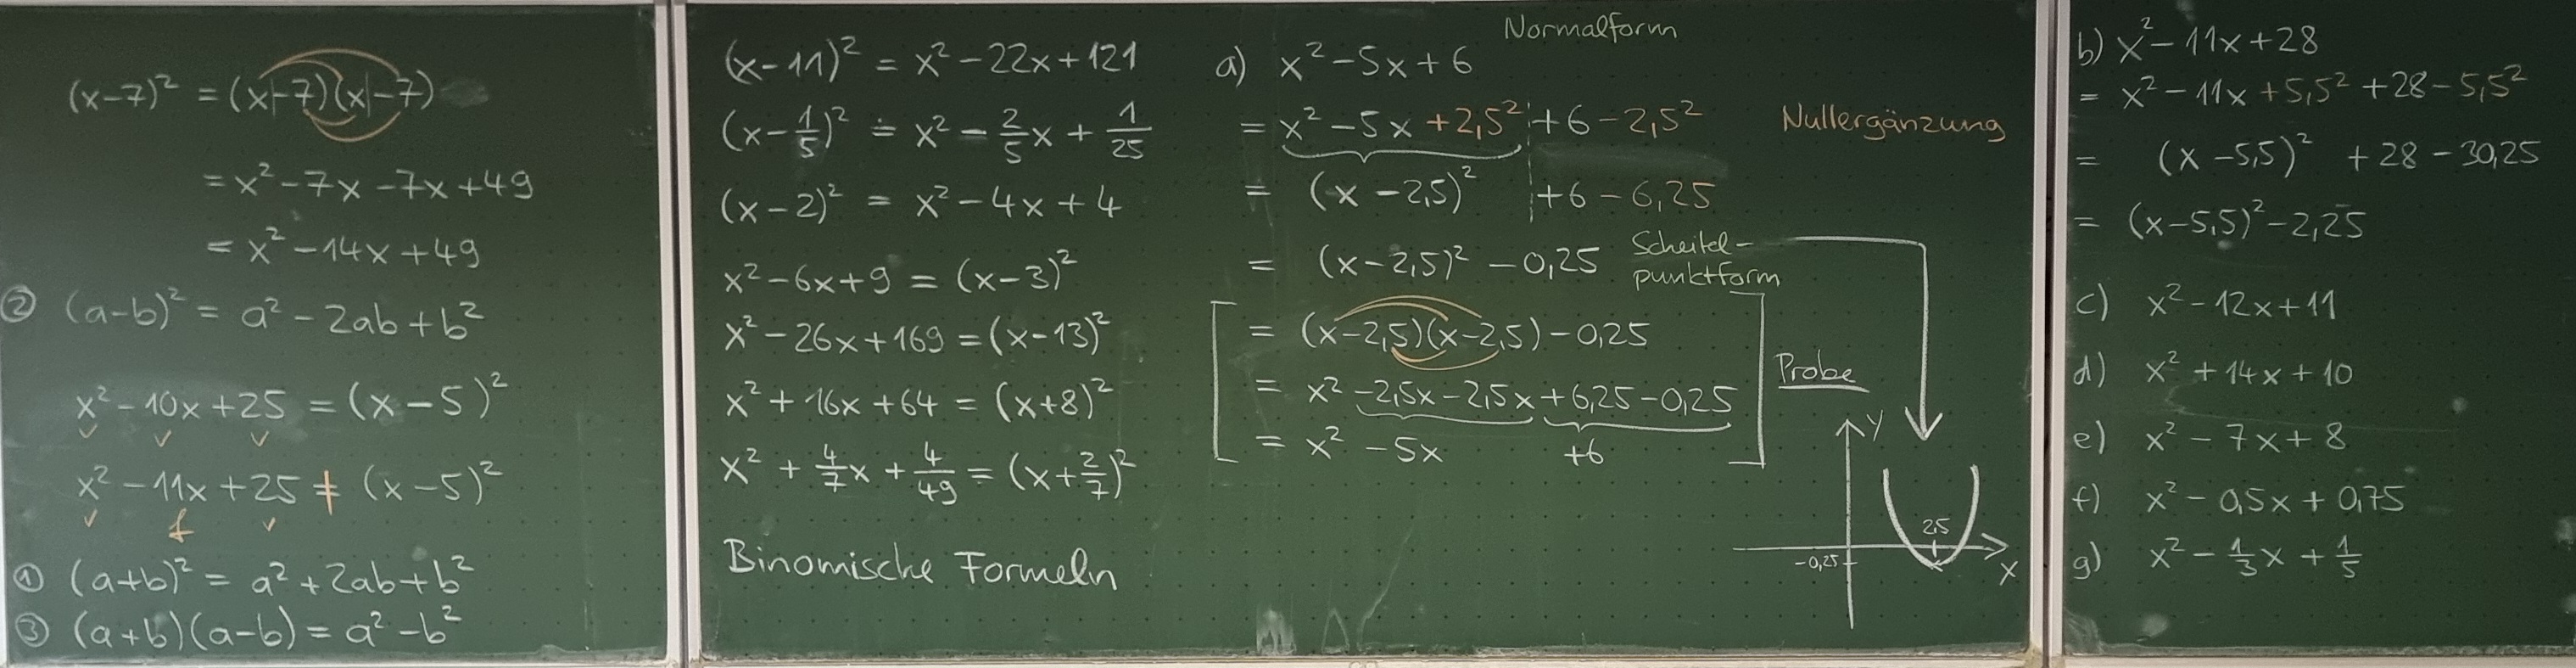 (x-7)² = (x-7)(x-7)
= x² - 7x - 7x + 49
= x² - 14x + 49
② (a-b)² = a² - 2ab + b²
x² - 10x + 25 = (x-5)²
x² - 11x + 25 ≠ (x-5)²
① (a+b)² = a² + 2ab + b²
③ (a+b)(a-b) = a² - b²
(x-11)² = x² - 22x + 121
(x-1/5)² = x² - 2/5x + 1/25
(x-2)² = x² - 4x + 4
x² - 6x + 9 = (x-3)²
x² - 26x + 169 = (x-13)²
x² + 16x + 64 = (x+8)²
x² + 4/7x + 4/49 = (x+2/7)²
Binomische Formeln
Normalform
a) x² - 5x + 6
= x² - 5x + 2,5² + 6 - 2,5² Nullergänzung
= (x - 2,5)² + 6 - 6,25
= (x - 2,5)² - 0,25 Scheitel-
punktform
= (x-2,5)(x-2,5) - 0,25
= x² - 2,5x - 2,5x + 6,25 - 0,25 Probe
= x² - 5x +6
y
2,5
-0,25
x
b) x² - 11x + 28
= x² - 11x + 5,5² + 28 - 5,5²
= (x - 5,5)² + 28 - 30,25
= (x-5,5)² - 2,25
c) x² - 12x + 11
d) x² + 14x + 10
e) x² - 7x + 8
f) x² - 0,5x + 0,75
g) x² - 1/3x + 1/5